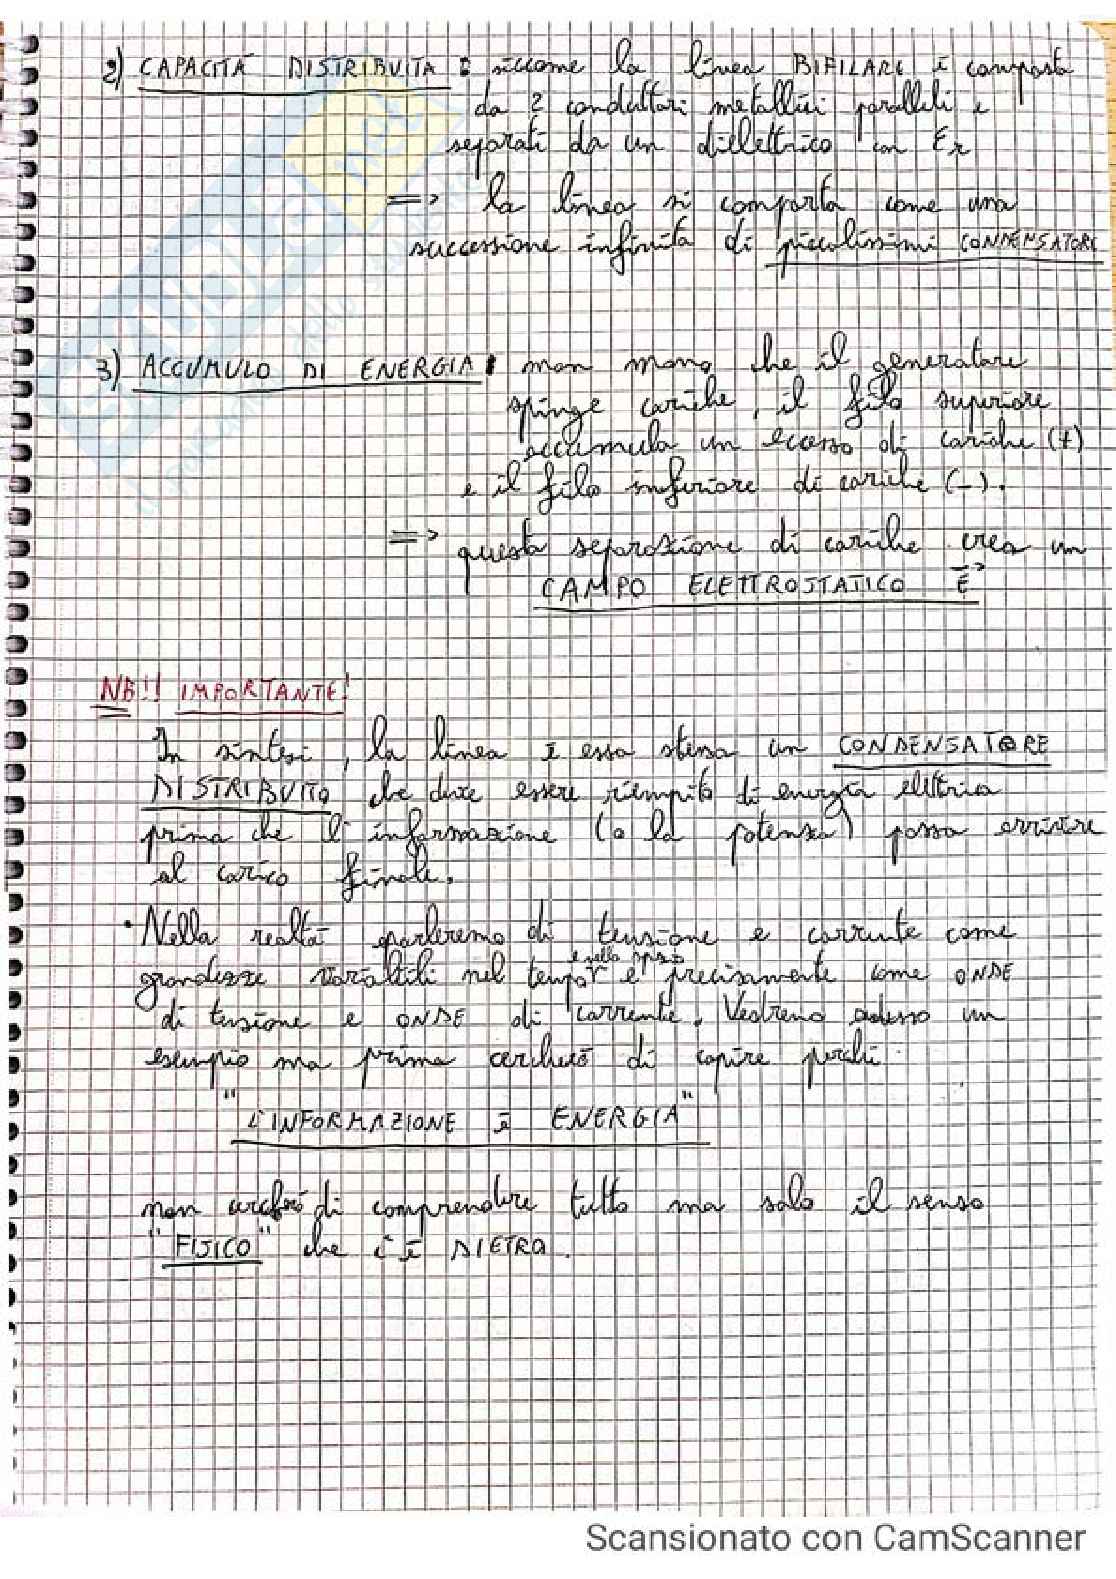 2) CAPACITÀ DISTRIBUITA : siccome la linea BIFILARE è composta
da 2 conduttori metallici paralleli e
separati da un dielettrico con Er
=> la linea si comporta come una
successione infinita di piccolissimi CONDENSATORI
3) ACCUMULO DI ENERGIA : man mano che il generatore
spinge cariche, il filo superiore
accumula un ecesso di cariche (+)
e il filo inferiore di cariche (-).
=> questa separazione di cariche crea un
CAMPO ELETTROSTATICO E
NB!! IMPORTANTE!
In sintesi, la linea è essa stessa un CONDENSATORE
DISTRIBUITO che deve essere riempito di energia elettrica
prima che l'informazione (o la potenza) possa arrivare
al carico finale.
• Nella realtà parleremo di tensione e corrente come
e nello spazio
grandezze variabili nel tempo e precisamente come ONDE
di tensione e ONDE di corrente. Vedremo adesso un
esempio ma prima cercherò di capire perchè
"L'INFORMAZIONE È ENERGIA"
non cercherò di comprendere tutto ma solo il senso
"FISICO" che c'è DIETRO.
Scansionato con CamScanner